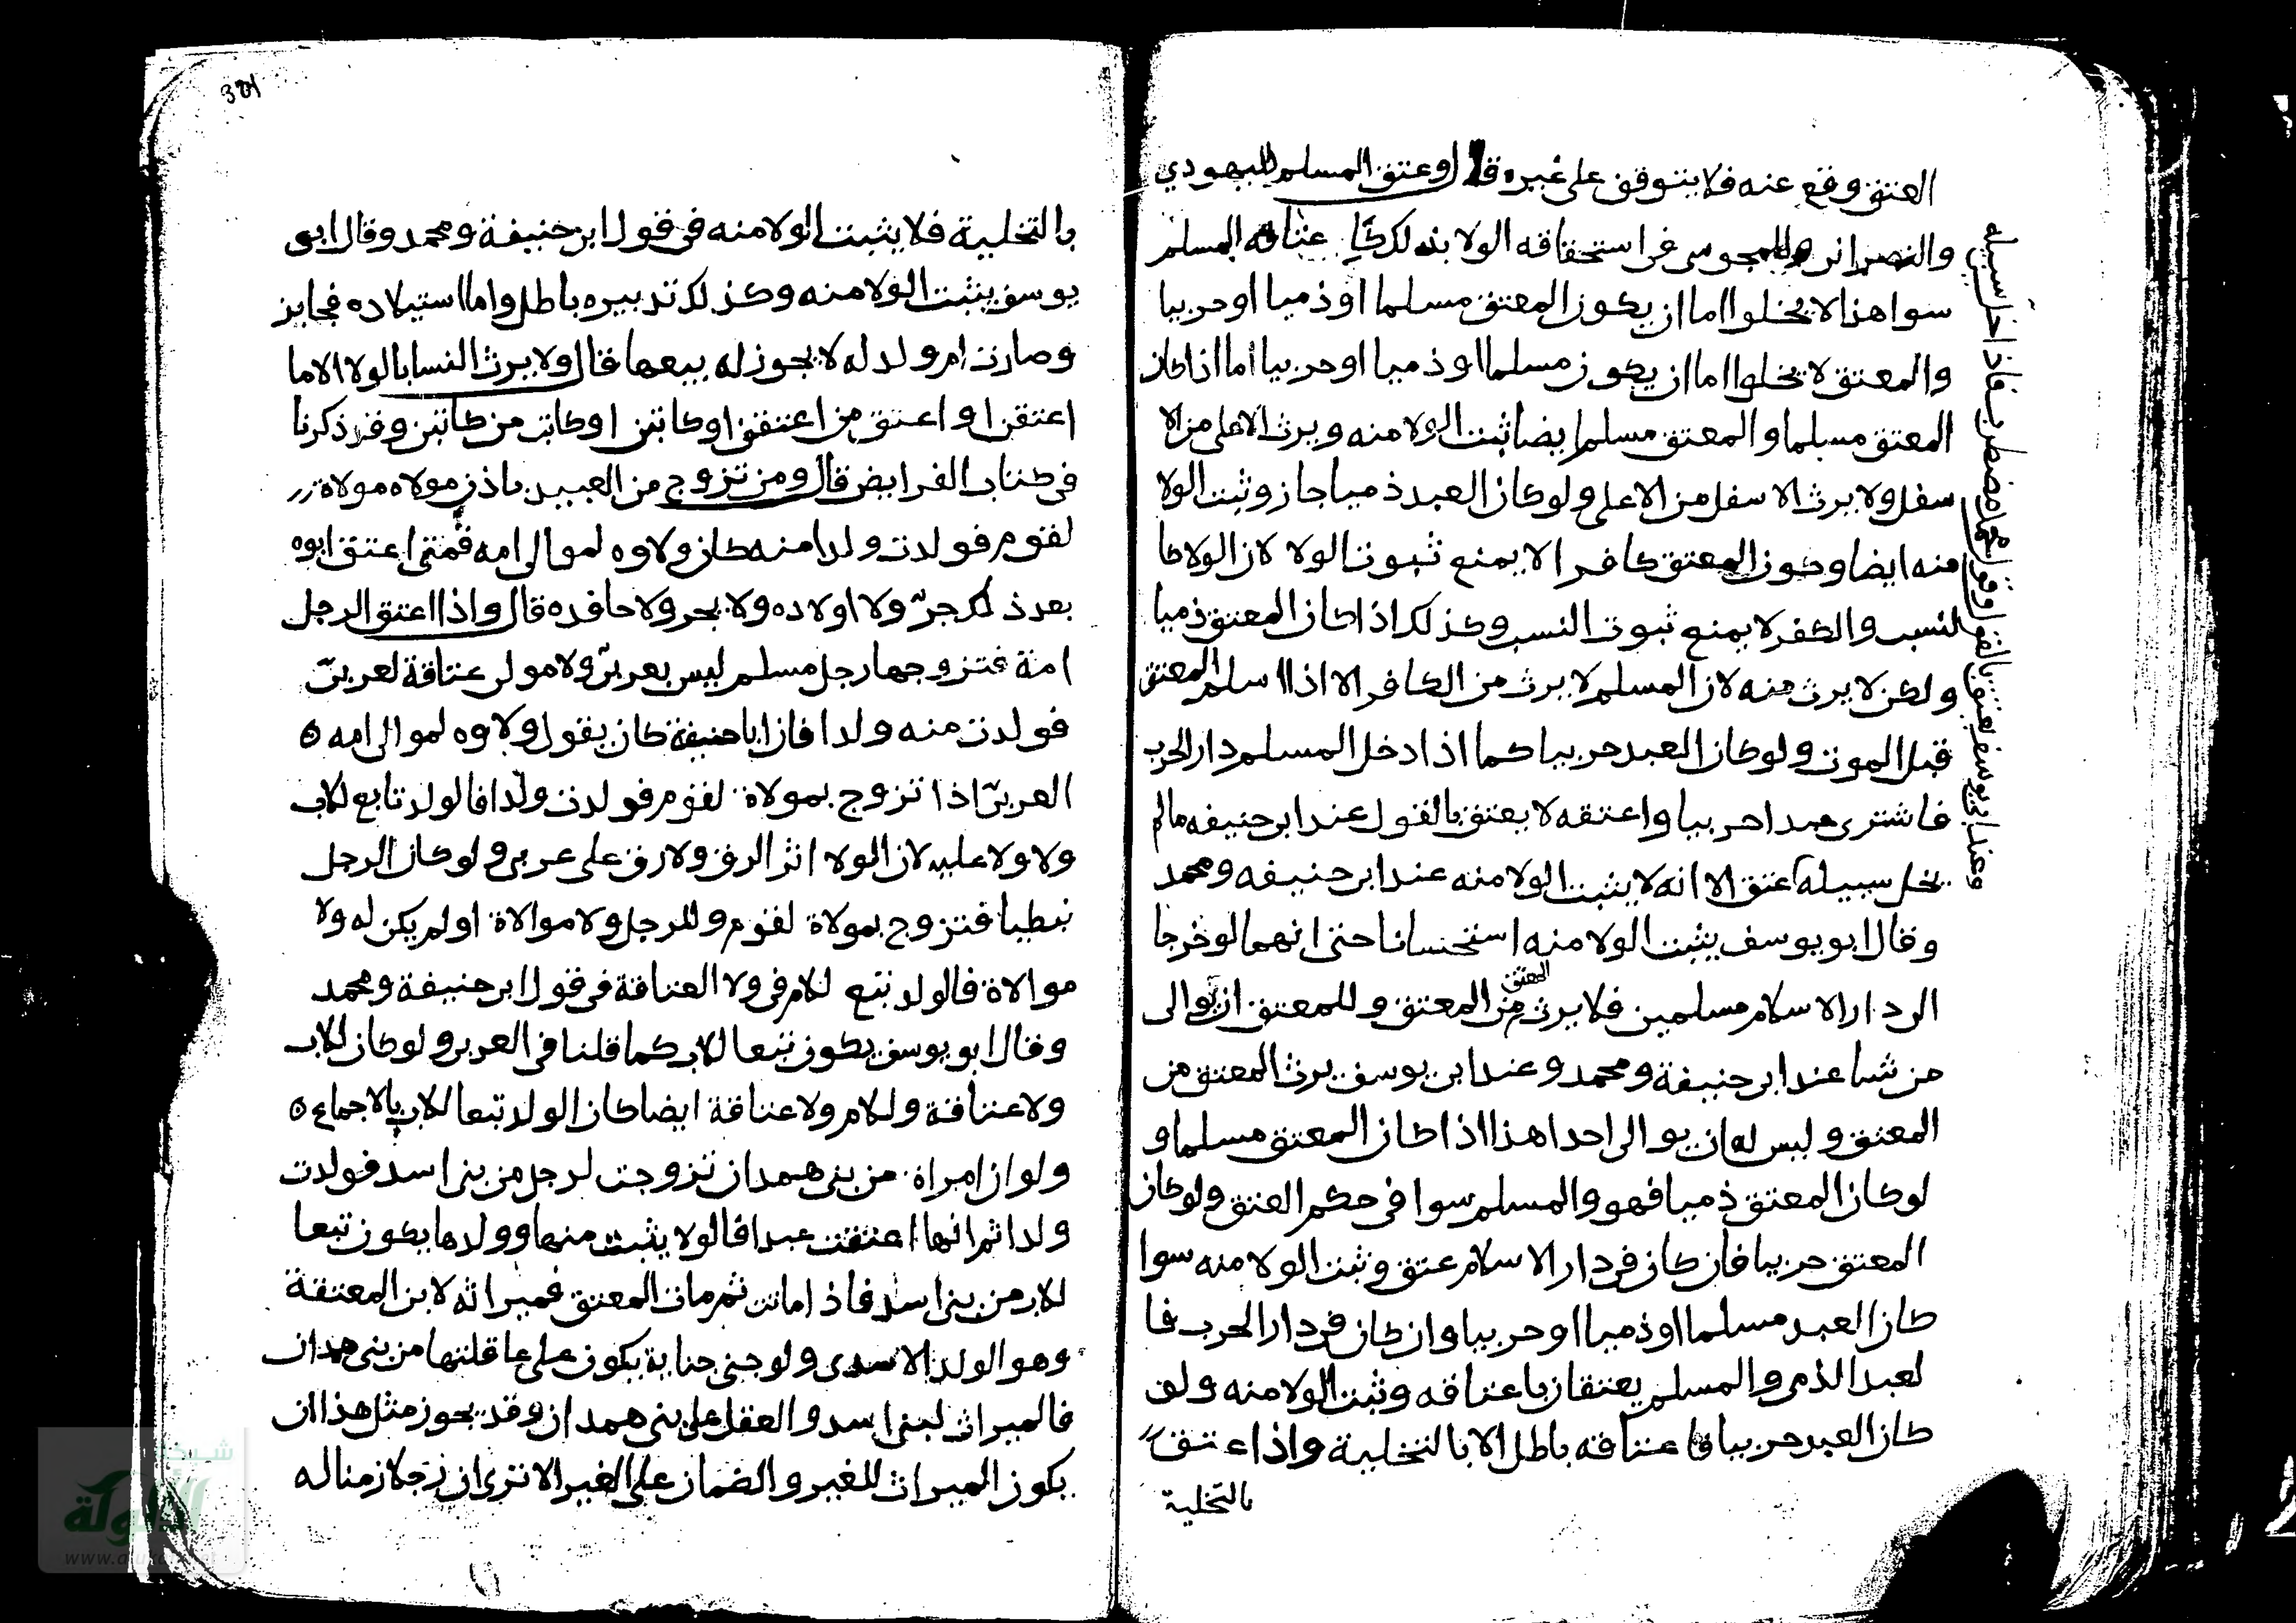 العتق وقع عنه فلا يتوقف على غيره قال وعتق المسلم لليهودي
والنصراني وللمجوسي في استحقاقه الولا بذلك كا عتاقه المسلم
سوا هذا لا يخلوا اما ان يكون المعتق مسلما او ذميا او حربيا
والمعتق لا يخلوا اما ان يكون مسلما او ذميا او حربيا اما اذا كان
المعتق مسلما والمعتق مسلم ايضا ثبت الولا منه ويرث الاعلى من الا
سفل ولا يرث الاسفل من الاعلى ولو كان العبد ذميا جاز وثبت الولا
منه ايضا وكون المعتق كافرا لا يمنع ثبوت الولا لان الولا كا
لنسب والكفر لا يمنع ثبوت النسب وكذلك اذا كان المعتق ذميا
ولكن لا يرث منه لان المسلم لا يرث من الكافر الا اذا اسلم المعتق
قبل الموت ولو كان العبد حربيا كما اذا دخل المسلم دار الحرب
فاشترى عبدا حربيا واعتقه لا يعتق بالقول عند ابي حنيفه مالم
يخل سبيله عتق الا انه لا يثبت الولا منه عند ابي حنيفه ومحمد
وقال ابو يوسف يثبت الولا منه استحسانا حتى انهما لو خرجا
الى دار الاسلام مسلمين فلا يرث المعتق من المعتق وللمعتق ان يوالى
من شا عند ابي حنيفة ومحمد وعند ابي يوسف يرث المعتق من
المعتق وليس له ان يوالى احدا هذا اذا كان المعتق مسلما و
لو كان المعتق ذميا فهو والمسلم سوا في حكم العتق ولو كان
المعتق حربيا فان كان في دار الاسلام عتق وثبت الولا منه سوا
كان العبد مسلما او ذميا او حربيا وان كان في دار الحرب فا
لعبد الذمي والمسلم يعتقان باعتاقه وثبت الولا منه ولو
كان العبد حربيا فاعتاقه باطل الا بالتخلية واذا عتق
بالتخلية
وعند ابي يوسف يعتق بالقول وقول محمد مضطرب فاذا خلى سبيله
384
بالتخلية فلا يثبت الولا منه في قول ابي حنيفة ومحمد وقال ابو
يوسف يثبت الولا منه وكذلك تدبيره باطل واما استيلاده فجايز
وصارت ام ولد له لا يجوز له بيعها قال ولا يرث النسا بالولا الا ما
اعتقن او اعتق من اعتقن او كاتبن او كاتب من كاتبن وقد ذكرنا
في كتاب الفرايض قال ومن تزوج من العبيد باذن مولاه مولاة
لقوم فولدت ولدا منه كان ولاوه لموالي امه فمتى اعتق ابوه
بعد ذلك جر ولا اولاده ولا يجر ولا حافده قال واذا اعتق الرجل
امة فتزوجها رجل مسلم ليس بعربي ولا مولى عتاقة لعربي
فولدت منه ولدا فان ابا حنيفة كان يقول ولاوه لموالي امه ه
العربي اذا تزوج بمولاة لقوم فولدت ولدا فالولد تابع للاب
ولا ولا عليه لان الولا اثر الرق ولا رق على عربي ولو كان الرجل
نبطيا فتزوج بمولاة لقوم وللرجل ولا موالاة او لم يكن له ولا
موالاة فالولد تبع للام في ولا العتاقة في قول ابي حنيفة ومحمد
وقال ابو يوسف يكون تبعا للاب كما قلنا في العربي ولو كان للاب
ولا عتاقة وللام ولا عتاقة ايضا كان الولد تبعا للاب بالاجماع ه
ولو ان امراة من بني همدان تزوجت لرجل من بني اسد فولدت
ولدا ثم انها اعتقت عبدا فالولا يثبت منها وولدها يكون تبعا
للاب من بني اسد فاذا ماتت ثم مات المعتق فميراثه لابن المعتقة
وهو الولد الاسدي ولو جنى جناية يكون على عاقلتها من بني همدان
فالميراث لبني اسد والعقل على بني همدان وقد يجوز مثل هذا ان
يكون الميراث للغير والضمان على الغير الا ترى ان رجلا زمنا له
شبكة
الألوكة